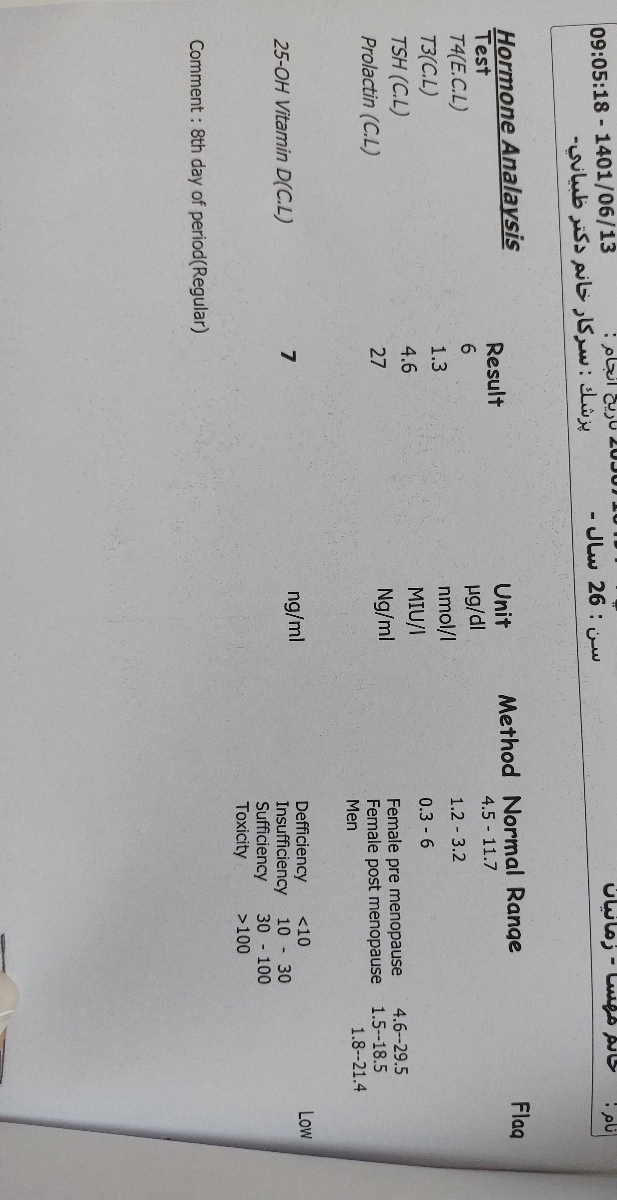 نام : خانم مهسا - زمانیان
سن : 26 سال -
تاریخ انجام :
09:05:18 - 1401/06/13
پزشك : سركار خانم دكتر طبيباني-
Hormone Analaysis
Test Result Unit Method Normal Range Flag
T4(E.C.L) 6 µg/dl 4.5 - 11.7
T3(C.L) 1.3 nmol/l 1.2 - 3.2
TSH (C.L) 4.6 MIU/l 0.3 - 6
Prolactin (C.L) 27 Ng/ml Female pre menopause 4.6--29.5
Female post menopause 1.5--18.5
Men 1.8--21.4
25-OH Vitamin D(C.L) 7 ng/ml Defficiency <10 Low
Insufficiency 10 - 30
Sufficiency 30 - 100
Toxicity >100
Comment : 8th day of period(Regular)